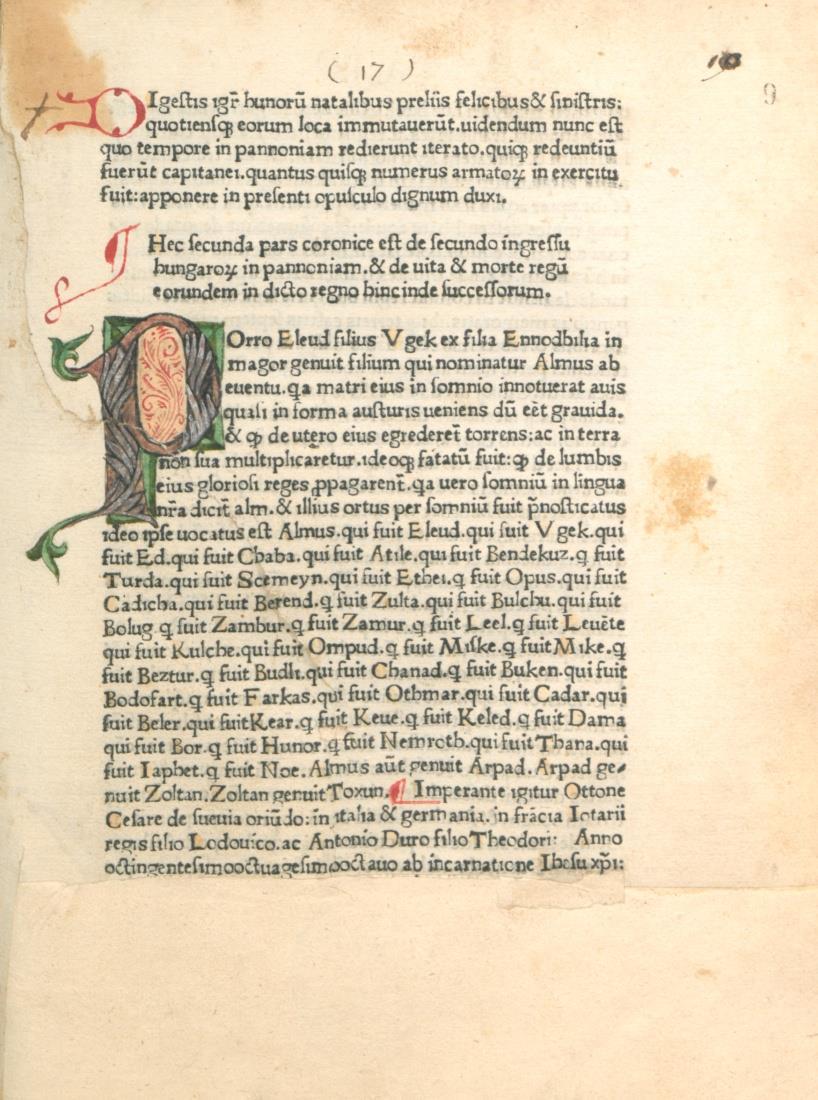 ( 17 )
9
DIgestis igr̃ hunorũ natalibus preliis felicibus & sinistris:
quotiensqꝫ eorum loca immutauerũt. uidendum nunc est
quo tempore in pannoniam redierunt iterato. quiqꝫ redeuntiũ
fuerũt capitanei. quantus quisqꝫ numerus armatoꝝ in exercitu
fuit: apponere in presenti opusculo dignum duxi.
Hec secunda pars coronice est de secundo ingressu
hungaroꝝ in pannoniam. & de uita & morte regũ
eorundem in dicto regno hinc inde successorum.
POrro Eleud filius Vgek ex filia Ennodbilia in
magor genuit filium qui nominatur Almus ab
euentu. qa matri eius in somnio innotuerat auis
quasi in forma austuris ueniens dũ eẽt grauida.
& ꝙ de utero eius egrederet̃ torrens: ac in terra
non sua multiplicaretur. ideoqꝫ fatatũ fuit: ꝙ de lumbis
eius gloriosi reges ꝓpagarent̃. qa uero somniũ in lingua
nr̃a dicit̃ alm. & illius ortus per somniũ fuit p̃nosticatus
ideo ipse uocatus est Almus. qui fuit Eleud. qui fuit Vgek. qui
fuit Ed. qui fuit Chaba. qui fuit Atile. qui fuit Bendekuz. q̃ fuit
Turda. qui fuit Scemeyn. qui fuit Ethei. q̃ fuit Opus. qui fuit
Cadicha. qui fuit Berend. q̃ fuit Zulta. qui fuit Bulchu. qui fuit
Bolug. q̃ fuit Zambur. q̃ fuit Zamur. q̃ fuit Leel. q̃ fuit Leuẽte
qui fuit Kulche. qui fuit Ompud. q̃ fuit Miske. q̃ fuit Mike. q̃
fuit Beztur. q̃ fuit Budli. q̃ fuit Chanad. q̃ fuit Buken. qui fuit
Bodofart. q̃ fuit Farkas. qui fuit Othmar. qui fuit Cadar. qui
fuit Beler. qui fuit Kear. q̃ fuit Keue. q̃ fuit Keled. q̃ fuit Dama
qui fuit Bor. q̃ fuit Hunor. q̃ fuit Nemroth. qui fuit Thana. qui
fuit Iaphet. q̃ fuit Noe. Almus aũt genuit Arpad. Arpad ge⸗
nuit Zoltan. Zoltan genuit Toxun. ¶ Imperante igitur Ottone
Cesare de sueuia oriũdo: in italia & germania. in frãcia Lotarii
regis filio Lodouico. ac Antonio Duro filio Theodori: Anno
octingentesimooctuagesimooctauo ab incarnatione Ihesu xp̃i: